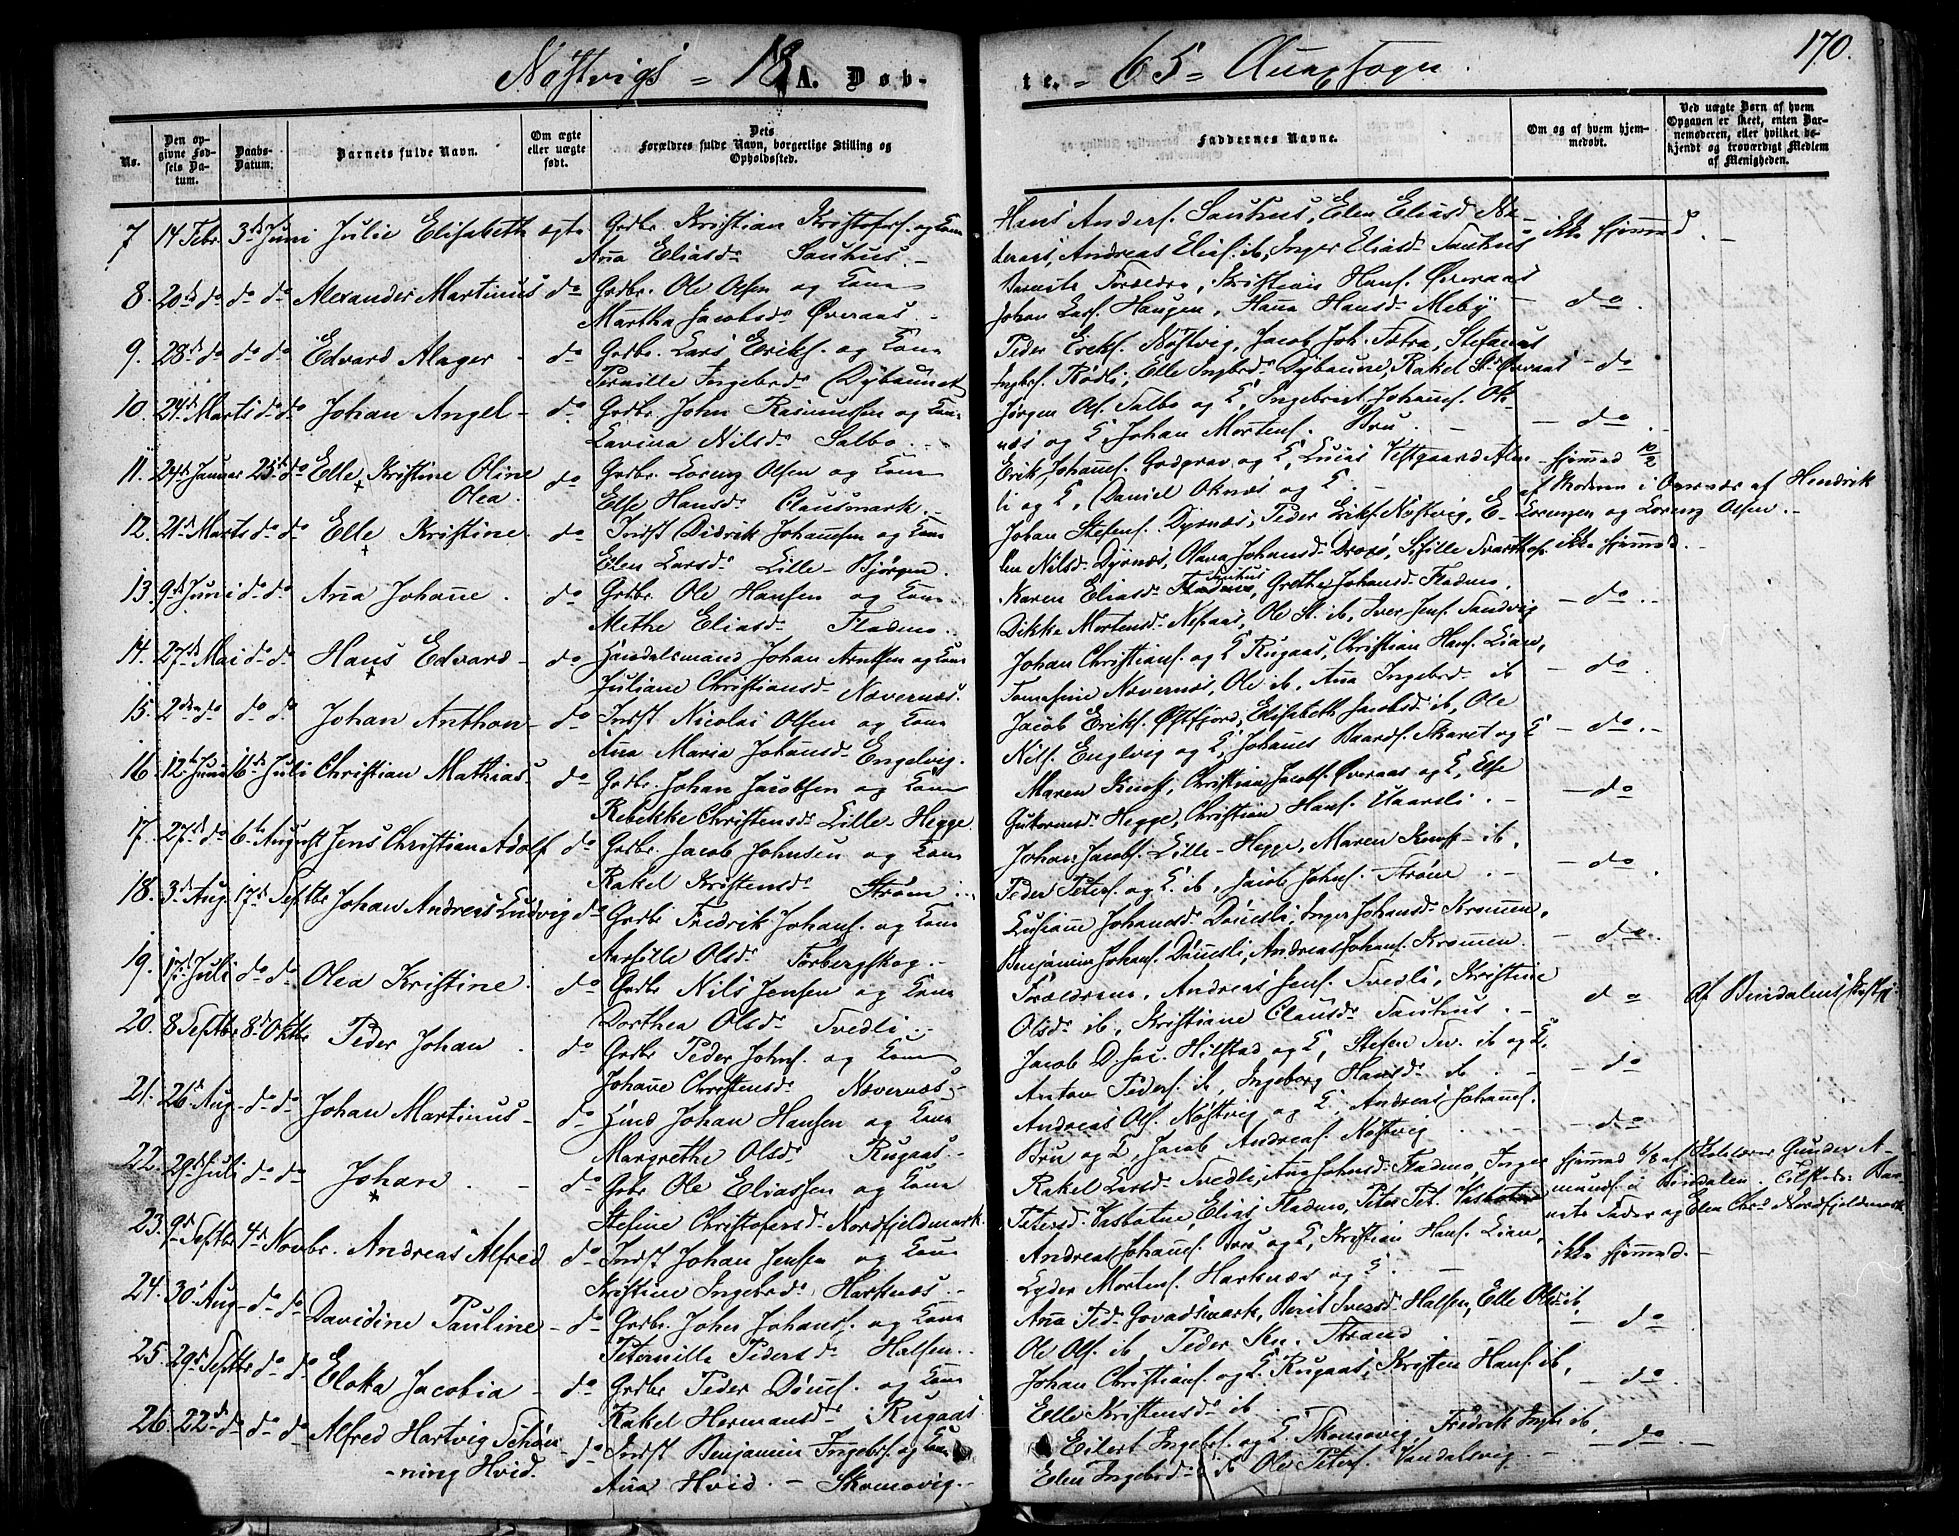 Nøstvigs - 18 A. Døb-
te. - 65 - Aunesogn.
170.
No.
Den op-
givne Fød-
sels Da-
tum.
Daabs-
Datum.
Barnets fulde Navn.
Om ægte
eller uægte
født.
Dets
Forældres fulde Navn, borgerlige Stilling og
Opholdssted.
Faddernes Navne.
Om og af hvem hjem-
medøbt.
Ved uægte Børn af hvem
Opgaven er skeet, enten Bar-
nemoderen, eller hvilket be-
kjendt og troværdigt Medlem
af Menigheden.
7 14 Febr. 3die Juni Julie Elisabeth ægte Grdbr. Kristian Kristofers. og Kone
Ana Eliasdr Sauhus.
Hans Anders. Sauhus, Elen Eliasd
Andreas Elias. ib, Inger Eliasdr Sauhus
ikke hjemmed.
8. 20de do do do Alexander Martinus do Grdbr. Ole Olsen og Kone
Martha Jacobsdr Øveraas.
Barnets Forældre, Kristian Hans. Øveraas
Johan Lars. Haugen, Hana Hansdr Mebÿ
do
9. 28de do do do Edvard Alager do Grdbr. Lars Eriks. og Kone
Pernille Ingebrdr Dÿbaunet
Peder Eriks. Nøstvig, Jacob Joh. Fætra, Stefanus
Ingbrs. Rødli, Elle Ingbrdr Dÿbaune, Rakel St. Øveraas
do
10. 24de Marts do do Johan Angel do Grdbr. John Rasmussen og Kone
Lavina Nilsdr Salbo.
Jørgen Ols. Salbo og K, Ingebrigt Johans. Ok-
næs og K, Johan Mortens. Bru.
do
11. 24de Januar 25de do Elle Kristine Oline
Olea.
do Grdbr. Lorenz Olsen og Kone
Else Hansdr Clausmark.
Erik Johans. Godgrav og K, Lucas Vestgaard Alm-
li og K, Daniel Oknæs og K.
hjemmed 10/2
af Moderen i Overvær af Hendrik
Lorenzen og Lorenz Olsen.
12. 21de Marts do do Elle Kristine. do Indst Didrik Johansen og Kone
Elen Larsdr Lille-Bjørgen.
Johan Stefens. Dÿrnæs, Peder Eriks. Nøstvig, E-
len Nilsdr Dÿrnæs, Olava Johansdr
ikke hjemmed.
13. 9de Juni do do Ana Johane. do Grdbr. Ole Hansen og Kone
Methe Eliasdr Fladmo.
Karen Eliasdr Sauhus, Grethe Johansdr Fladmo,
Dikka Mortensdr Nepaas, Ole St. ib, Iver Jens. Sandvig
do
14. 27de Mai do do Hans Edvard do Handelsmand Johan Arntsen og Kone
Juliane Christiansdr Nævernæs
Johan Christians. og K Rugaas, Christian Hans. Lian,
Tomasine Nævernæs, Ole ib, Ana Ingebrdr ib
do
15. 2den do do do Johan Anthon do Indst Nicolai Olsen og Kone
Ana Maria Johansdr Engelvig.
Jacob Eriks. Østfjord, Elisabeth Jacobsdr ib, Ole
Nils. Englvig og K, Johanes Baards. Skaret og K
do
16. 12te Juni 16de Juli Christian Mathias do Grdbr. Johan Jacobsen og Kone
Rebekke Christensdr Lille-Hegge.
Maren Knoff, Christian Jacobs. Øveraas og K, Else
Gutormsdr Hegge, Christian Hans. Aaarli.
do
17. 27de do 6te August Jens Christian Adolf do Grdbr. Jacob Johnsen og Kone
Rakel Kristensdr Strøm.
Johan Jacobs. Lille-Hegge, Maren Knoff ib,
Peder Peters. og K. ib, Jacob Johns. Strøm.
do
18. 3de Aug. 17de Septbr Johan Andreas Ludvig do Grdbr Fredrik Johans. og Kone
Aasille Olsdr Torbergskog.
Lusiane Johansdr Døuesli, Inger Johansdr Kromen,
Benjamin Johans. Døuesli, Andreas Johans. Kromen.
do.
19. 17de Juli do do Olea Kristine. do Grdbr Nils Jensen og Kone
Dorthea Olsdr Svedli.
Forældrene, Andreas Jens. Svedli, Kristine
Olsdr ib, Kristiane Clausdr Sauhus.
do
Af Bindalens Præstegj.
20. 8 Septbr 8de Oktbr Peder Johan. do Grdbr Peder Johns. og Kone
Johane Christensdr Nævernæs.
Jacob D. Jac. Hilstad og K, Stefen Sev. ib og K.
Anton Peders. ib, Ingeborg Hansdr ib.
do
21. 26de Aug do do Johan Martinus do Hmd Johan Hansen og Kone
Margrethe Olsdr Rugaas
Andreas Ols. Nøstvig og K, Andreas Johans.
Bru og K, Jacob Andreas. Nøstvig
do
22. 29de Juli do do Johan. do Grbr Ole Eliassen og Kone
Stefine Christofersdr Nordfjeldmark.
Rakel Larsdr Svedli, Ana Johnsdr Fladmo, Inger
Petersd. Vasbotne, Elias Fladmo, Peter Pet. Vasbotne
hjemmed 6/8 af Skolelærer Gunder A-
munds. i Bindalen. Tilstede: Bar-
nets Fader og Elen Chrdr Nordfjeldmark
23. 9de Septbr 4de Novbr. Andreas Alfred do Indst Johan Jensen og Kone
Kristine Ingebrdr Harknæs.
Andreas Johans. Bru og K, Kristian Hans. Lian,
Lyder Mortens. Harknæs og K.
ikke hjemmed.
24. 30 Aug do do Davidine Pauline do Grdbr. John Johans. og Kone
Peternille Pedersdr Halsen.
Ana Pedr Govadsmark, Berit Svendsdr Halsen, Elle Olsdr ib,
Ole Ols. ib, Peder Kn. Strand
do
25. 29de Septbr do do Eloka Jacobia do Grdbr Peder Dønes. og Kone
Rakel Hermansdr Rugaas
Johan Christians. og K. Rugaas, Kristen Hans. ib,
Elle Kristensdr ib
do
26. 22de do do do Alfred Hartvig Schøn-
ning Hvid.
do Indst Benjamin Ingebrs. og Kone
Ana Hvid. Skomovig.
Eilert Ingebrs. og K. Skomovig, Fredrik Ingbr ib,
Elen Ingebrdr ib Ole Peters. Vandalsvig
do.